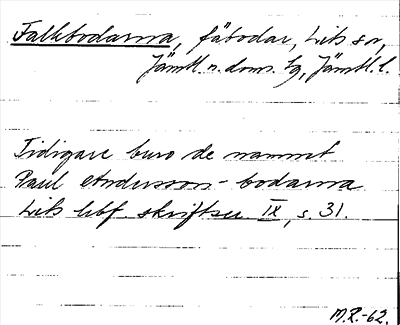 Falkbodarna, fäbodar, Lits sn,
Jämtl. n. doms. tg, Jämtl. l.
Tidigare buro de namnet
Paul Andersson-bodarna
Lits hbf. skriftser. IX, s. 31.
M.R.-62.